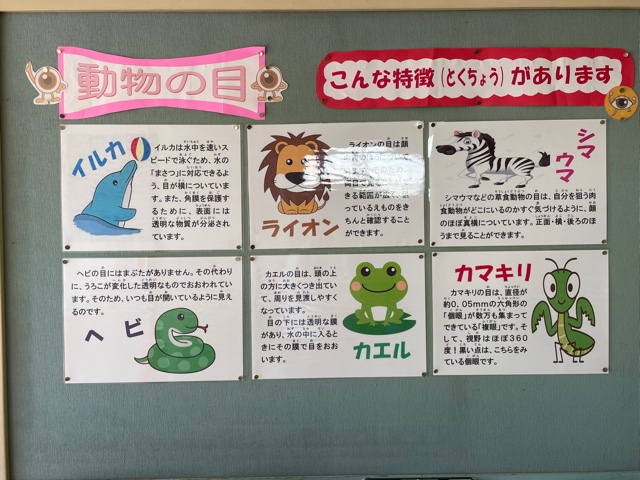 動物の目
こんな特徴(とくちょう)があります
イルカ
イルカは水中を速いス
ピードで泳ぐため、水の
「まさつ」に対応できるよ
う、目が横についていま
す。また、角膜を保護す
るために、表面には
透明な物質が分泌され
ています。
ライオン
ライオンの目は顔
きる範囲が広く、狙
っているえものをき
ちんと確認すること
ができます。
シマ
ウマ
シマウマなどの草食動物の目は、自分を狙う肉
食動物がどこにいるのかすぐ気づけるように、顔
のほぼ真横についています。正面・横・後ろのほ
うまで見ることができます。
ヘビの目にはまぶたがありません。その代わり
に、うろこが変化した透明なものでおおわれてい
ます。そのため、いつも目が開いているように見え
るのです。
ヘビ
カエルの目は、頭の上
の方に大きくつき出てい
て、周りを見渡しやすく
なっています。
目の下には透明な膜
があり、水の中に入ると
きにその膜で目をおお
います。
カエル
カマキリ
カマキリの目は、直径が
約0.05mmの六角形の
「個眼」が数万も集まって
できている「複眼」です。そ
して、視野はほぼ360
度!黒い点は、こちらをみ
ている個眼です。